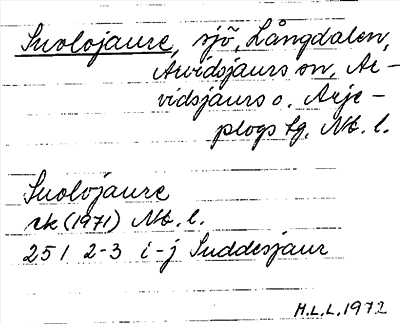 Suolojaure, sjö, Långdalen,
Arvidsjaurs sn, Ar-
vidsjaurs o. Arje-
plogs tg, Nb. l.
Suolojaure
rk (1971) Nb. l.
25 I 2-3 i-j Suddesjaur
H.L.L. 1972